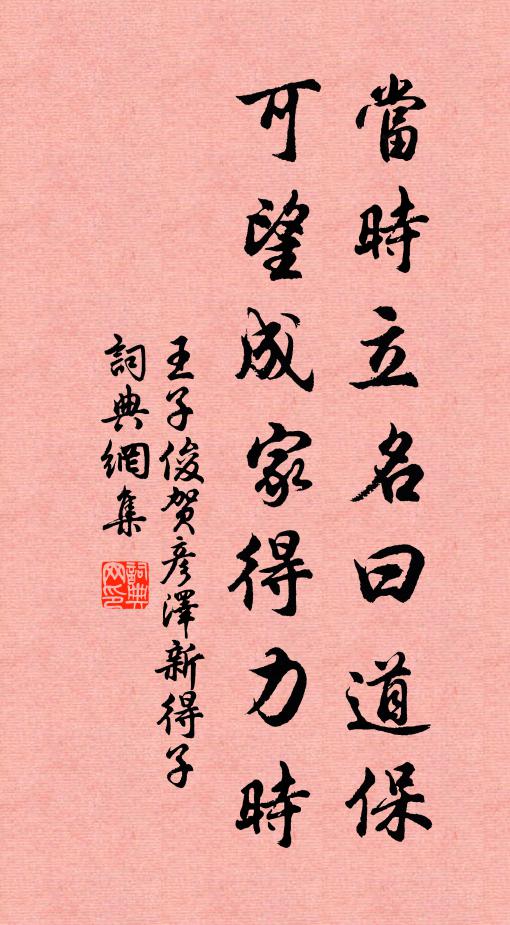 當時立名曰道保
可望成家得力時
王子俊賀彥澤新得子
詞典網集
詞典网印